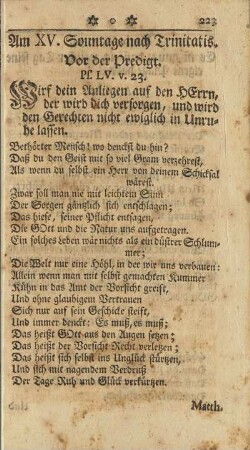 ❀ o ❀ 223
Am XV. Sonntage nach Trinitatis.
Vor der Predigt.
Ps. LV. v. 23.
Wirf dein Anliegen auf den HErrn,
der wird dich versorgen, und wird
den Gerechten nicht ewiglich in Unru-
he lassen.
Bethörter Mensch! wo denckst du hin?
Daß du den Geist mit so viel Gram verzehrest,
Als wenn du selbst ein Herr von deinem Schicksal
wärest.
Zwar soll man nie mit leichtem Sinn
Der Sorgen gäntzlich sich entschlagen;
Das hiese, seiner Pflicht entsagen,
Die GOtt und die Natur uns aufgetragen.
Ein solches Leben wär nichts als ein düstrer Schlum-
mer;
Die Welt nur eine Höhl, in der wir uns verbauen:
Allein wenn man mit selbst gemachten Kummer
Kühn in das Amt der Vorsicht greift,
Und ohne glaubigem Vertrauen
Sich nur auf sein Geschicke steift,
Und immer denckt: Es muß, es muß;
Das heißt GOtt aus den Augen setzen;
Das heißt der Vorsicht Recht verletzen;
Das heißt sich selbst ins Unglück stürtzen,
Und sich mit nagendem Verdruß
Der Tage Ruh und Glück verkürtzen.
Matth.